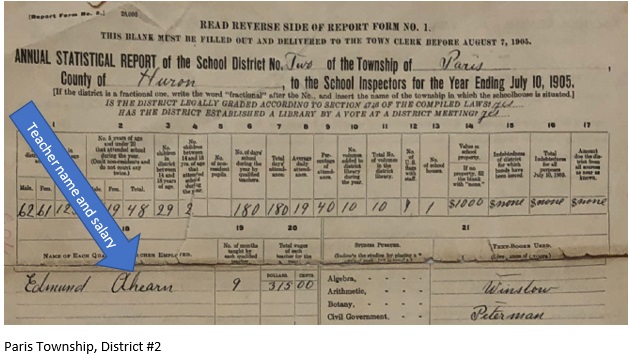 [Report Form No. 2.] 28,000
READ REVERSE SIDE OF REPORT FORM NO. 1.
THIS BLANK MUST BE FILLED OUT AND DELIVERED TO THE TOWN CLERK BEFORE AUGUST 7, 1905.
ANNUAL STATISTICAL REPORT of the School District No. Two of the Township of Paris,
County of Huron, to the School Inspectors for the Year Ending July 10, 1905.
[If the district is a fractional one, write the word "fractional" after the No., and insert the name of the township in which the schoolhouse is situated.]
IS THE DISTRICT LEGALLY GRADED ACCORDING TO SECTION 4748 OF THE COMPILED LAWS? yes
HAS THE DISTRICT ESTABLISHED A LIBRARY BY A VOTE AT A DISTRICT MEETING? yes
1 2 3 4 5 6 7 8 9 10 11 12 13 14 15 16 17
No. 5 years of age and under 20 that attended school during the year. (Omit non-residents and do not count any twice.)
No. children in district between 14 and 15 years of age.
No. children between 14 and 15 yrs. of age that attended school during the year.
No. of non-resident pupils.
No. of days' school during year by qualified teachers.
Total days' attendance.
Average daily attendance.
Percentage of attendance.
No. volumes added to district library during the year.
Total No. of volumes in district library.
No. of U.S. flags with staff.
No. of school houses.
Value of school property. If no property, fill the blank with "none."
Indebtedness of district for which bonds have been issued.
Total indebtedness for all purposes July 10, 1905.
Amount due the district from all sources as near as known.
Male. Fem. Male. Fem. Total.
62 61 19 48 29 2 180 180 19 40 10 10 1 1 $1000 $none $none $none
Teacher name and salary
18 19 20 21
NAME OF EACH TEACHER EMPLOYED.
No. of months taught by each qualified teacher.
Total wages of each teacher for the year.
STUDIES PURSUED.
TEXT-BOOKS USED.
DOLLARS. CENTS
Edmund Ahearn 9 315 00
Algebra,
Arithmetic, Winslow
Botany,
Civil Government, Peterman
Paris Township, District #2